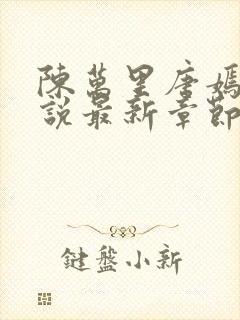 陳萬里唐嫣
說最新章節
鍵盤小新